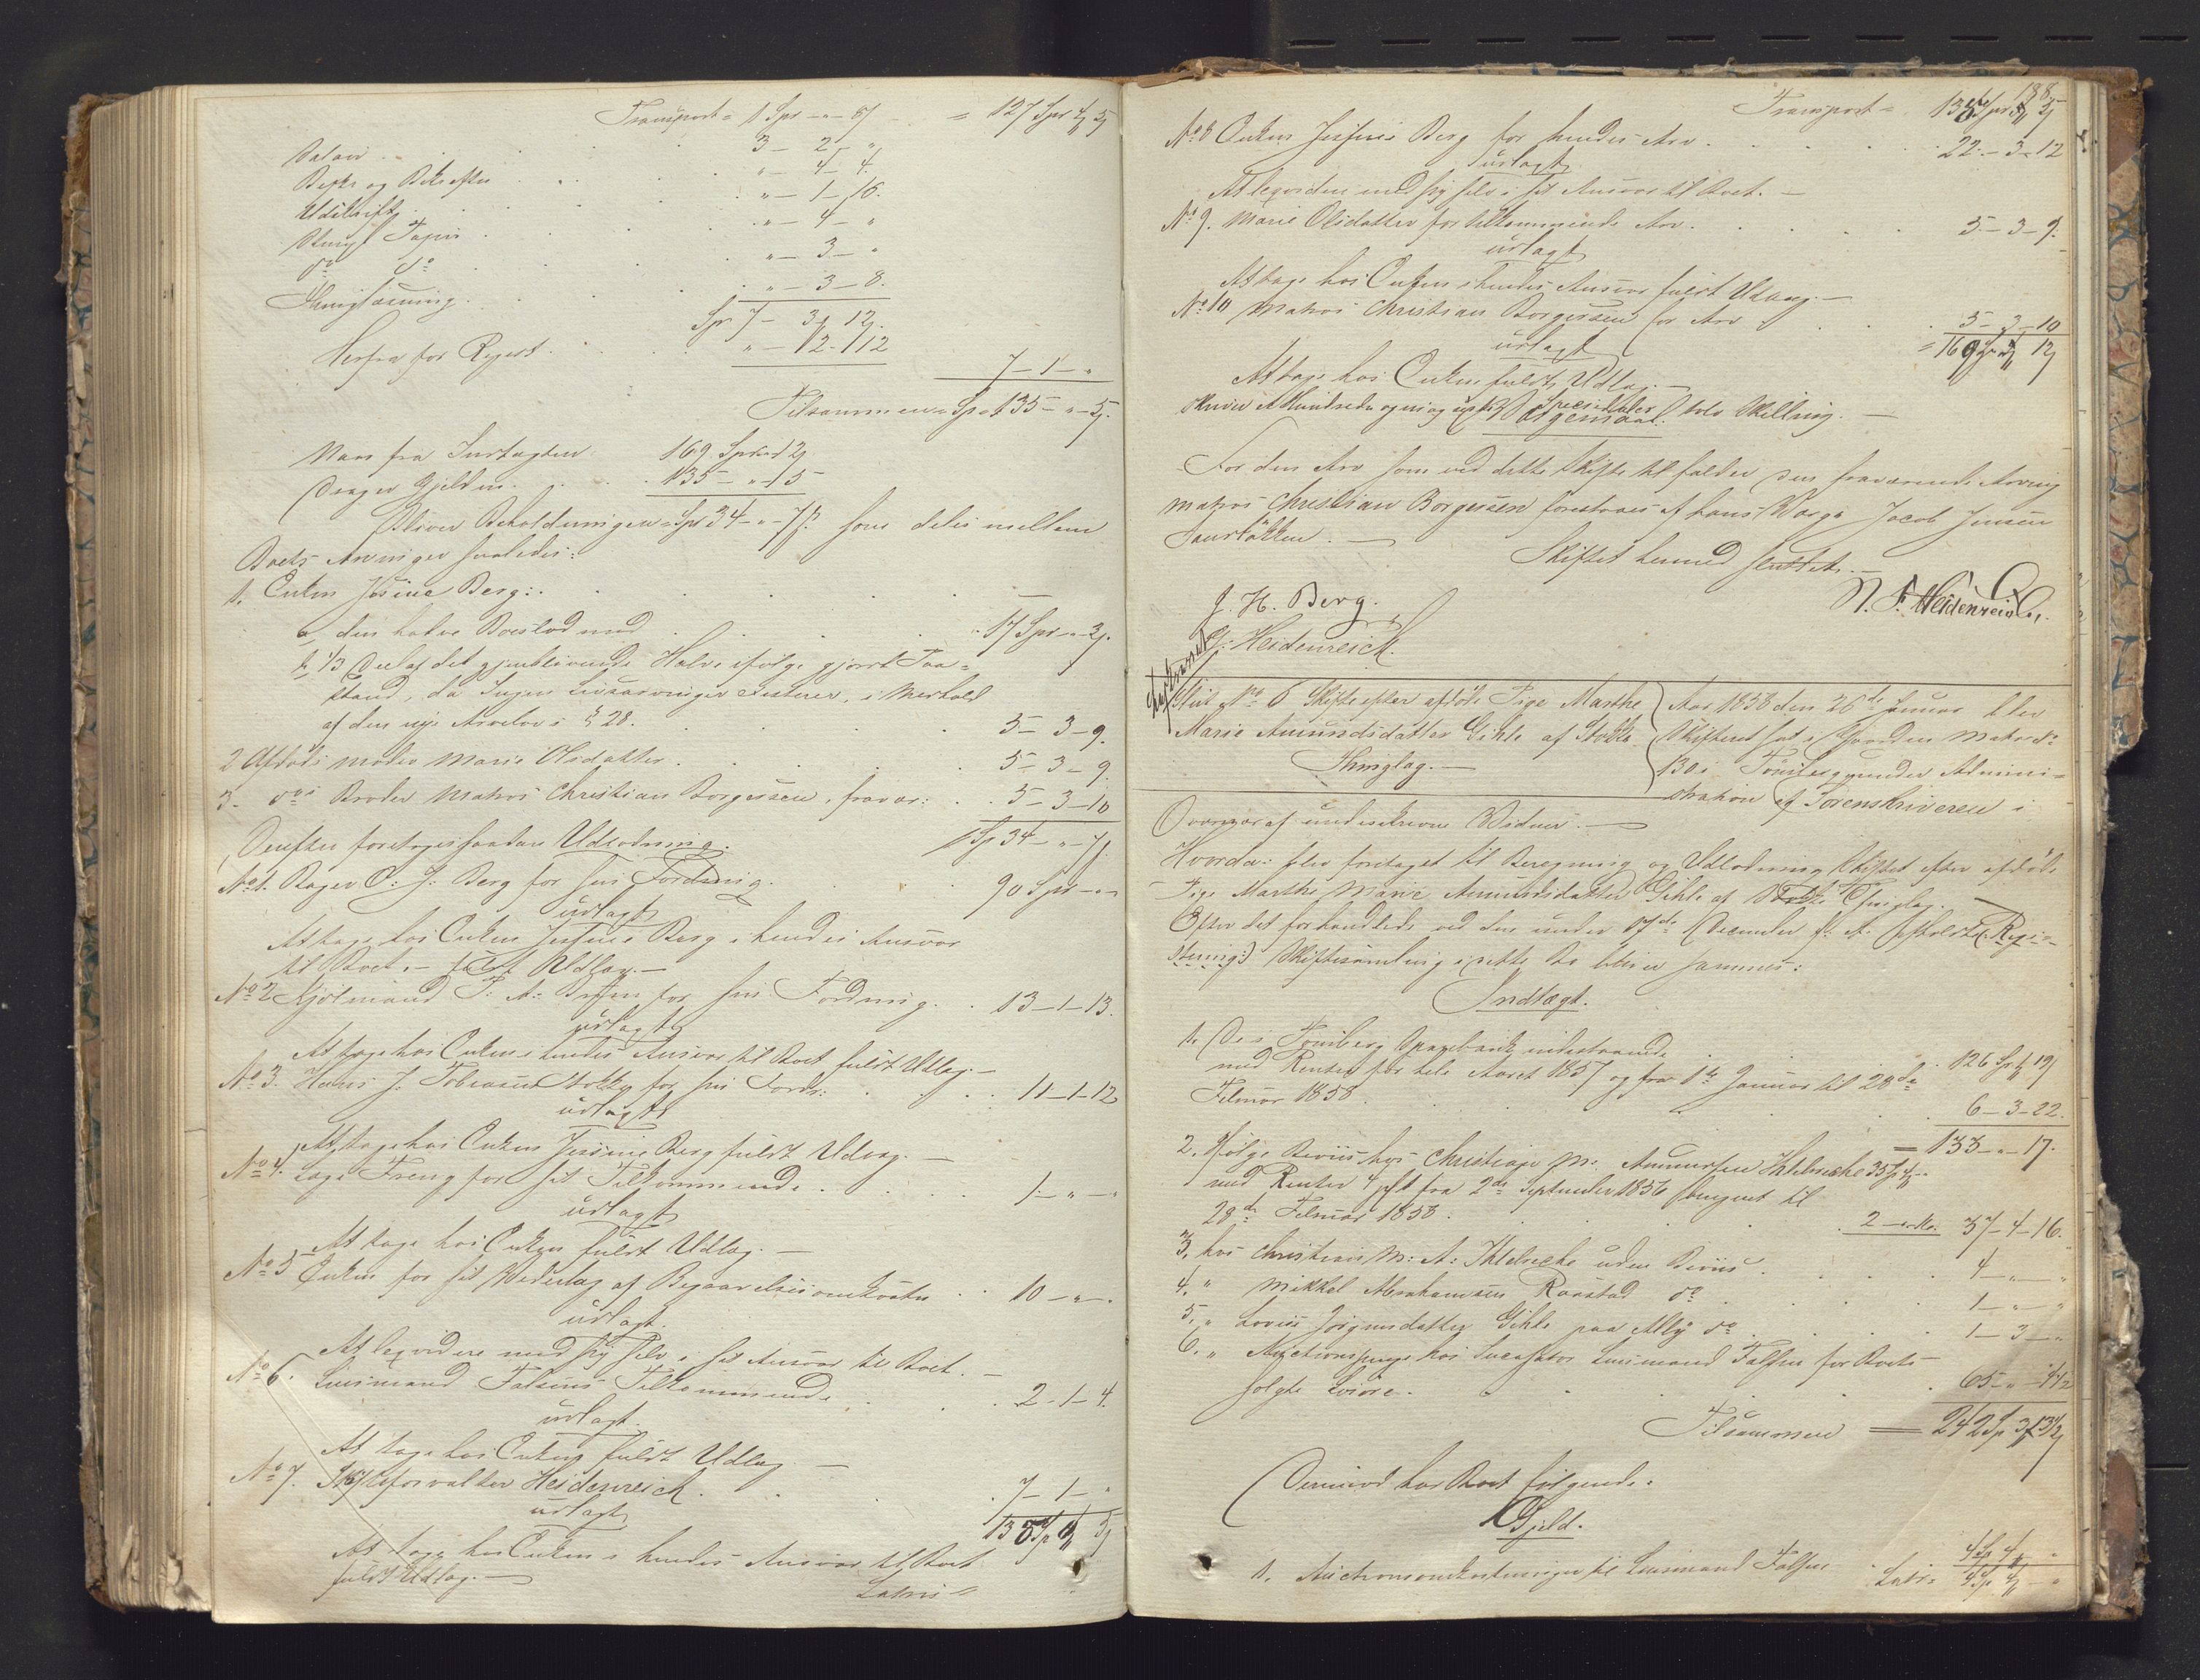 Transport = 1 Spr - " - 8/ = 127 Spr 4 5/
Salair 3 - 2 "
Beskr og Bekræfter " - 4 - 4.
Udskrift " - 1 - 16.
Stempl Papir " - 4 - "
do do " - 3 - "
Thinglæsning " - 3 - 8.
Spr 7 - 3 12.
Herfra for Regist. " - 2 - 12
7 - 1 - "
Tilsammen = Spr 135 - " - 5.
Naar fra Indtægten 169 Spr " 12
Drages Gjelden 135 - " - 5
Bliver Beholdningen = Spr 34 - " - 7 som deles mellem
Boets Arvinger saaledes:
1. Enken Josine Berg:
a, den halve Boeslod med 17 Spr - " - 3.
b, 1/3 Deel af det gjenblivende Halve ifølge gjort Paa-
stand, da Ingen Livsarvinger existerer, i Medhold
af den nye Arvelov's § 28. 5 - 3 - 9.
2 Afdødes moder Marie Olsdatter 5 - 3 - 9.
3. ds Broder Matros Christian Borgersen, fravær: 5 - 3 - 10
Spr 34 - " - 7.
Derefter foretoges saadan Udlodning.
No 1. Bager O: J: Berg for sin Fordring. 90 Spr - " -
udlagt
At tage hos Enken Josine Berg i hendes Ansvar
til Boet. - fuldt Udlæg. -
No 2 Kjøbmand P: A: for sin Fordring. 13 - 1 - 13.
udlagt
At tage hos Enken i hendes Ansvar til Boet fuldt Udlæg. -
No 3. Hans J: Tobiassen Stokke for sin Fordr: 11 - 1 - 12
udlagt
At tage hos Enken Josine Berg fuldt Udlæg. -
No 4. for sit Tilkommende 1 - " - "
udlagt
At tage hos Enken fuldt Udlæg. -
No 5 Enken for sit Vederlag af Begravelsesomkostn 10 - " - "
udlagt.
At leqvidere med sig selv i sit Ansvar til Boet. -
No 6. Lensmand Falsens Tilkommende 2 - 1 - 4.
udlagt.
At tage hos Enken fuldt Udlæg. -
No 7. Skifteforvalter Heidenreich. 7 - 1 - "
udlagt 135 Sp " 5/
At tage hos Enken i hendes Ansvar til Boet
fuldt Udlæg. -
Latris =
188.
Transport = 135 Spr " 5/
No 8 Enken Josine Berg for hendes Arv 22 - 3 - 12
udlagt
At leqvidere med sig selv i sit Ansvar til Boet. -
No 9. Marie Olsdatter for tilkommende Arv. 5 - 3 - 9.
udlagt
At tage hos Enken i hendes Ansvar fuldt Udlæg. -
No 10 Matros Christian Borgersen for Arv 5 - 3 - 10
udlagt = 169 Spr " 12
At tage hos Enken fuldt Udlæg. -
Skriver Et Hundrede og ni og Speciedaler tolv Skilling. -
Vergemaal.
For den Arv som ved dette Skifte tilfalder den fraværende Arving
Matros Christian Borgersen forestaaes af hans Værge Jacob Jensen
Skiftet hermed sluttet. -
J. H. Berg. N. F. Heidenreich.
G: Heidenreich.
Extraheret
Slut No 6 Skifte efter afdøde Pige Marthe
Marie Amundsdatter Gihle af Stokke
Thinglag. -
Aar 1858 den 26de Januar blev
Skifteret sat i Gaarden Matr No
130 i Tønsberg under Admini-
stration af Sorenskriveren i
Overvær af undeskrevne Vidner. -
Hvorda: blev foretaget til Beregning og Udlodning Skiftet efter afdøde
Pige Marthe Marie Amundsdatter Gihle af Stokke Thinglag. -
Efter det forhandlede ved den under 17de December f: A: afholdte (Regi-
strering) Skiftesamling i dette Bo bliver sammes:
Indtægt.
1. De i Tønsberg Sparebank indestaaende 126 Spr " 19/
med Renter for hele Aaret 1857 og fra 1ste Januar til 28de
Februar 1858. 6 - 3 - 22.
= 133 - " - 17.
2. Ifølge Beviis hos Christian M: Amundsen 35 Spr "
med Renter 4 pCt fra 2den September 1856 beregnet til
28de Februar 1858. 2 - 4 - 16. 37 - 4 - 16.
3. hos Christian M: A: uden Beviis. 4 - " - "
4. " Mikkel Abrahamsen Raastad do 1 - " - "
5. " Lovise Jørgensdatter Gihle paa do 1 - 3 - "
6. " Auctionspenge hos Incassator Lensmand Falsen for Boets
solgte Løsøre. 65 - " - 4 1/2
Tilsammen = 242 Sp 3 13 1/2
Derimod har Boet følgende:
Gjeld.
1. Auctionsomkostninger til Lensmand Falsen 4 Sp 4 "
Latr: 4 Sp 4 "